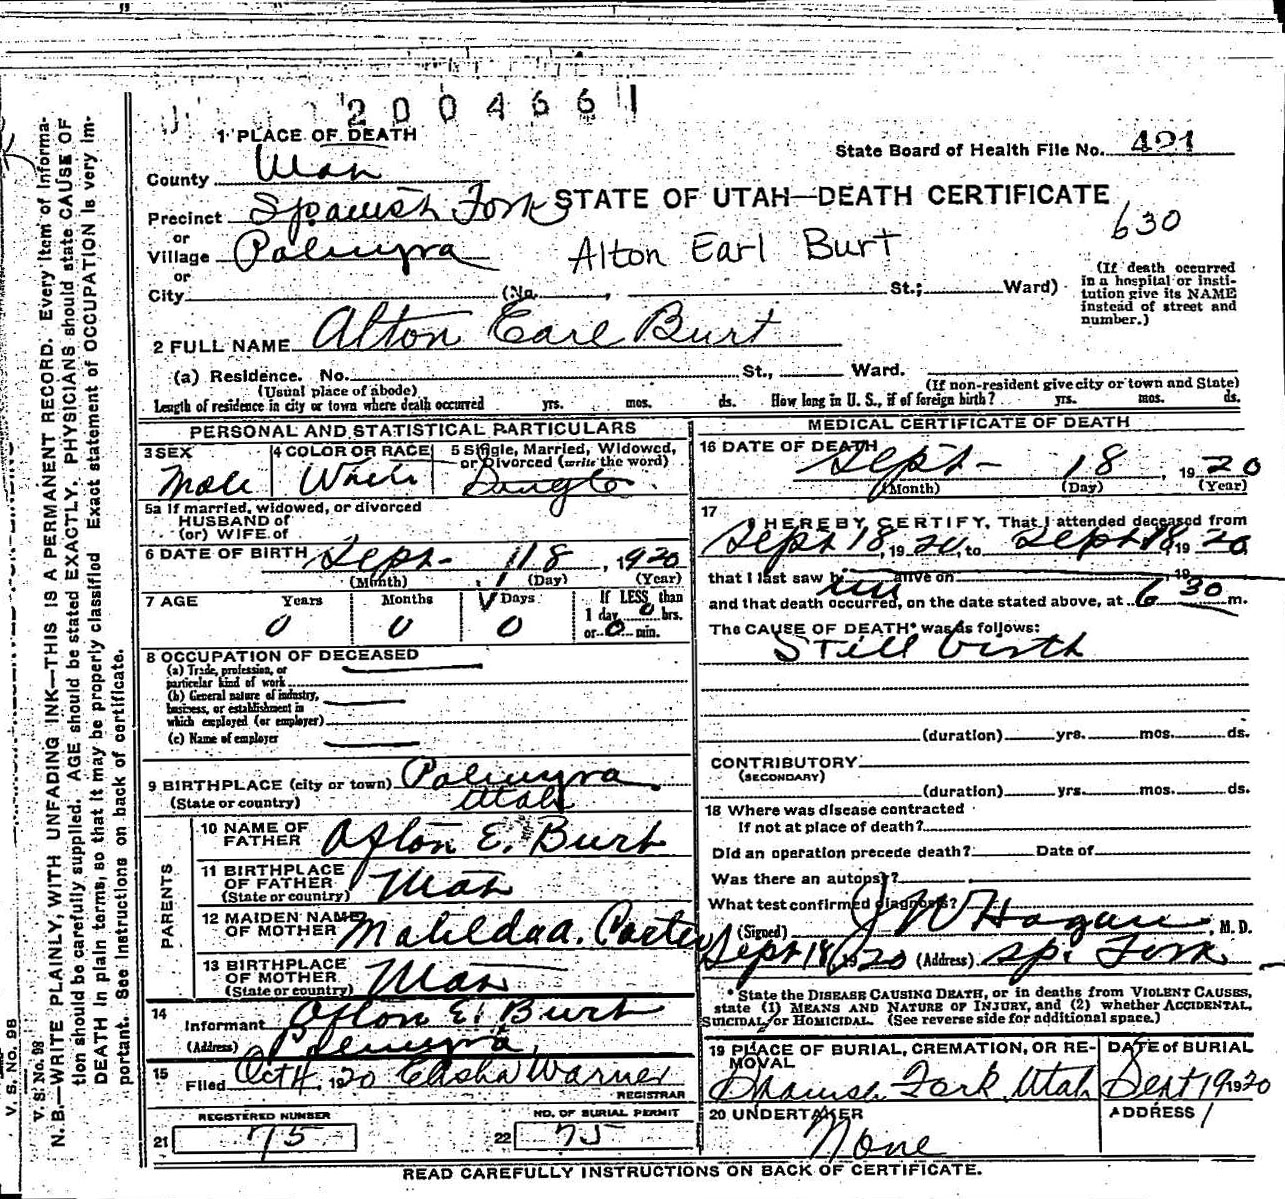 2004661
1 PLACE OF DEATH
State Board of Health File No. 421
County Utah
STATE OF UTAH—DEATH CERTIFICATE
Precinct Spanish Fork
630
or
Village Palmyra
Alton Earl Burt
or
City (No. , St.; Ward)
(If death occurred in a hospital or insti-
tution give its NAME
instead of street and
number.)
2 FULL NAME Alton Earl Burt
(a) Residence. No. St., Ward.
(Usual place of abode)
(If non-resident give city or town and State)
Length of residence in city or town where death occurred yrs. mos. ds. How long in U. S., if of foreign birth? yrs. mos. ds.
PERSONAL AND STATISTICAL PARTICULARS
3 SEX
Male
4 COLOR OR RACE
White
5 Single, Married, Widowed,
or Divorced (write the word)
Single
5a If married, widowed, or divorced
HUSBAND of
(or) WIFE of
6 DATE OF BIRTH Sept- 18, 1920
(Month) (Day) (Year)
7 AGE Years Months Days
0 0 0
If LESS than
1 day 0 hrs.
or 0 min.
8 OCCUPATION OF DECEASED
(a) Trade, profession, or
particular kind of work
(b) General nature of industry,
business, or establishment in
which employed (or employer)
(c) Name of employer
9 BIRTHPLACE (city or town) Palmyra
(State or country) Utah
PARENTS
10 NAME OF
FATHER Afton E. Burt
11 BIRTHPLACE
OF FATHER Utah
(State or country)
12 MAIDEN NAME
OF MOTHER Matilda A. Porter
13 BIRTHPLACE
OF MOTHER Utah
(State or country)
14
Informant Afton E. Burt
(Address) Palmyra
15
Filed Oct 4, 1920 Elisha Warner
REGISTRAR
REGISTERED NUMBER
21 75
NO. OF BURIAL PERMIT
22 75
MEDICAL CERTIFICATE OF DEATH
16 DATE OF DEATH
Sept- 18, 1920
(Month) (Day) (Year)
17
I HEREBY CERTIFY, That I attended deceased from
Sept 18, 1920, to Sept 18 1920
that I last saw h alive on 19
and that death occurred, on the date stated above, at 6 30 m.
The CAUSE OF DEATH* was as follows:
Still birth
(duration) yrs. mos. ds.
CONTRIBUTORY
(SECONDARY)
(duration) yrs. mos. ds.
18 Where was disease contracted
If not at place of death?
Did an operation precede death? Date of
Was there an autopsy?
What test confirmed diagnosis?
(Signed) J W Hagan, M. D.
Sept 18, 1920 (Address) Sp. Fork
* State the DISEASE CAUSING DEATH, or in deaths from VIOLENT CAUSES,
state (1) MEANS AND NATURE OF INJURY, and (2) whether ACCIDENTAL,
SUICIDAL, or HOMICIDAL. (See reverse side for additional space.)
19 PLACE OF BURIAL, CREMATION, OR RE-
MOVAL
Spanish Fork, Utah
DATE of BURIAL
Sept 19 1920
20 UNDERTAKER
None
ADDRESS
READ CAREFULLY INSTRUCTIONS ON BACK OF CERTIFICATE.
V. S. No. 98
V. S. No. 98
N. B.—WRITE PLAINLY, WITH UNFADING INK—THIS IS A PERMANENT RECORD. Every item of informa-
tion should be carefully supplied. AGE should be stated EXACTLY. PHYSICIANS should state CAUSE OF
DEATH in plain terms, so that it may be properly classified. Exact statement of OCCUPATION is very im-
portant. See instructions on back of certificate.